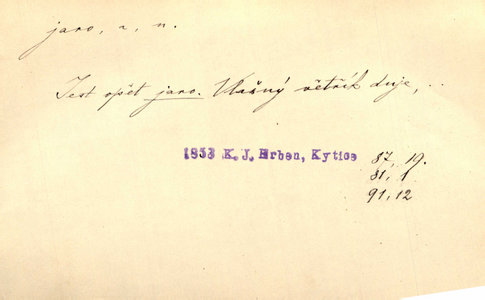 jaro, a, n.
Jest opět jaro. Vlažný větřík duje, ..
1853 K. J. Erben, Kytice 87, 19.
81, 1
91, 12